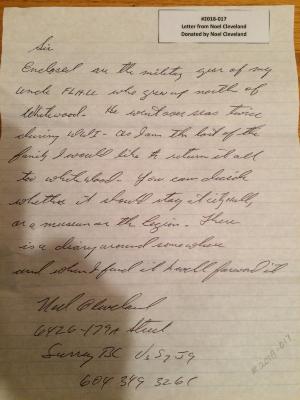 #2018-017
Letter from Noel Cleveland
Donated by Noel Cleveland
Sir
Enclosed are the military gear of my
uncle who grew up north of
Whitewood. He went over seas twice
during WW1 - as I am the last of the
family I would like to return it all
too whitewood. You can decide
whether it should stay at city hall,
or a museum or the legion. There
is a diary around somewhere
and when I find it I will forward it
Noel Cleveland
6426-179A Street
Surrey BC V3S 7J9
604 349 3266
#2018-017